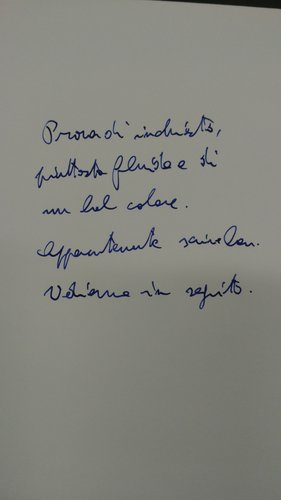 Prova di inchiostro,
piuttosto fluido e di
un bel colore.
Apparentemente scrive ben.
Vediamo in seguito.